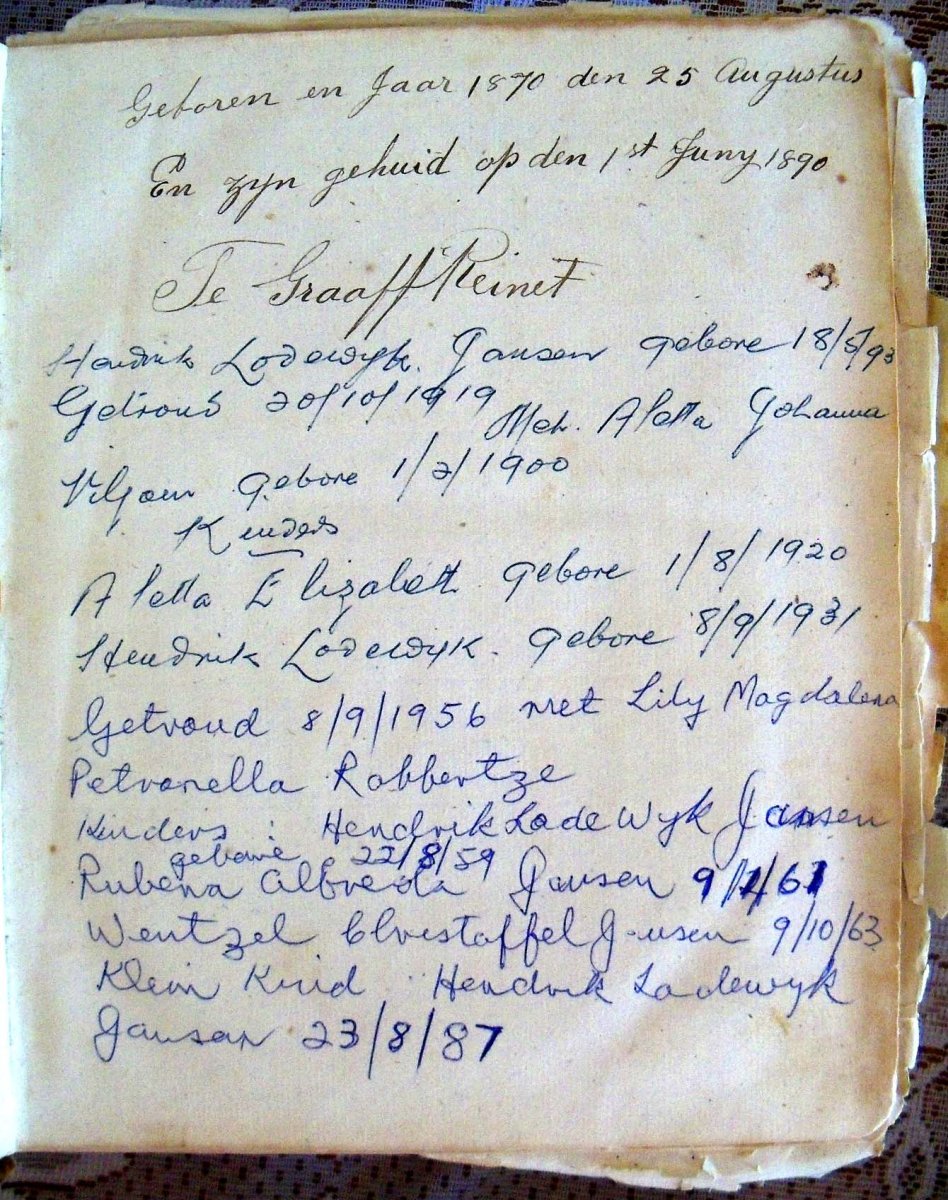 Geboren en Jaar 1870 den 25 Augustus
En zyn gehuid op den 1st Juny 1890
Te Graaff Reinet
Hendrik Lodewyk. Jansen gebore 18/5/93
Getroud 20/10/1919
Met. Aletta Johanna
Viljoen gebore 1/2/1900
Kinders
Aletta Elizabett gebore 1/8/1920
Hendrik Lodewyk. gebore 8/9/1931
Getroud 8/9/1956 met Lily Magdalena
Petronella Robbertze
Kinders : Hendrik Lodewyk Jansen
gebore 22/8/59
Rubena Albreda Jansen 9/1/61
Wentzel Christoffel Jansen 9/10/63
Klein Kind Hendrik Lodewyk
Jansen 23/8/87